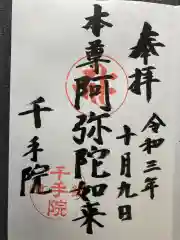 奉拝
令和三年
十月九日
本尊
阿弥陀如来
千手院
千手院